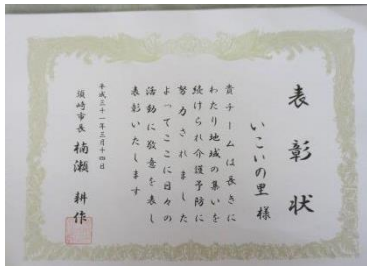 表彰状
いこいの里 様
貴チームは長きに
わたり地域の集いを
続けられ介護予防に
努力されました
よってここに日々の
活動に敬意を表し
表彰いたします
平成三十一年三月十四日
須崎市長 楠瀬 耕作